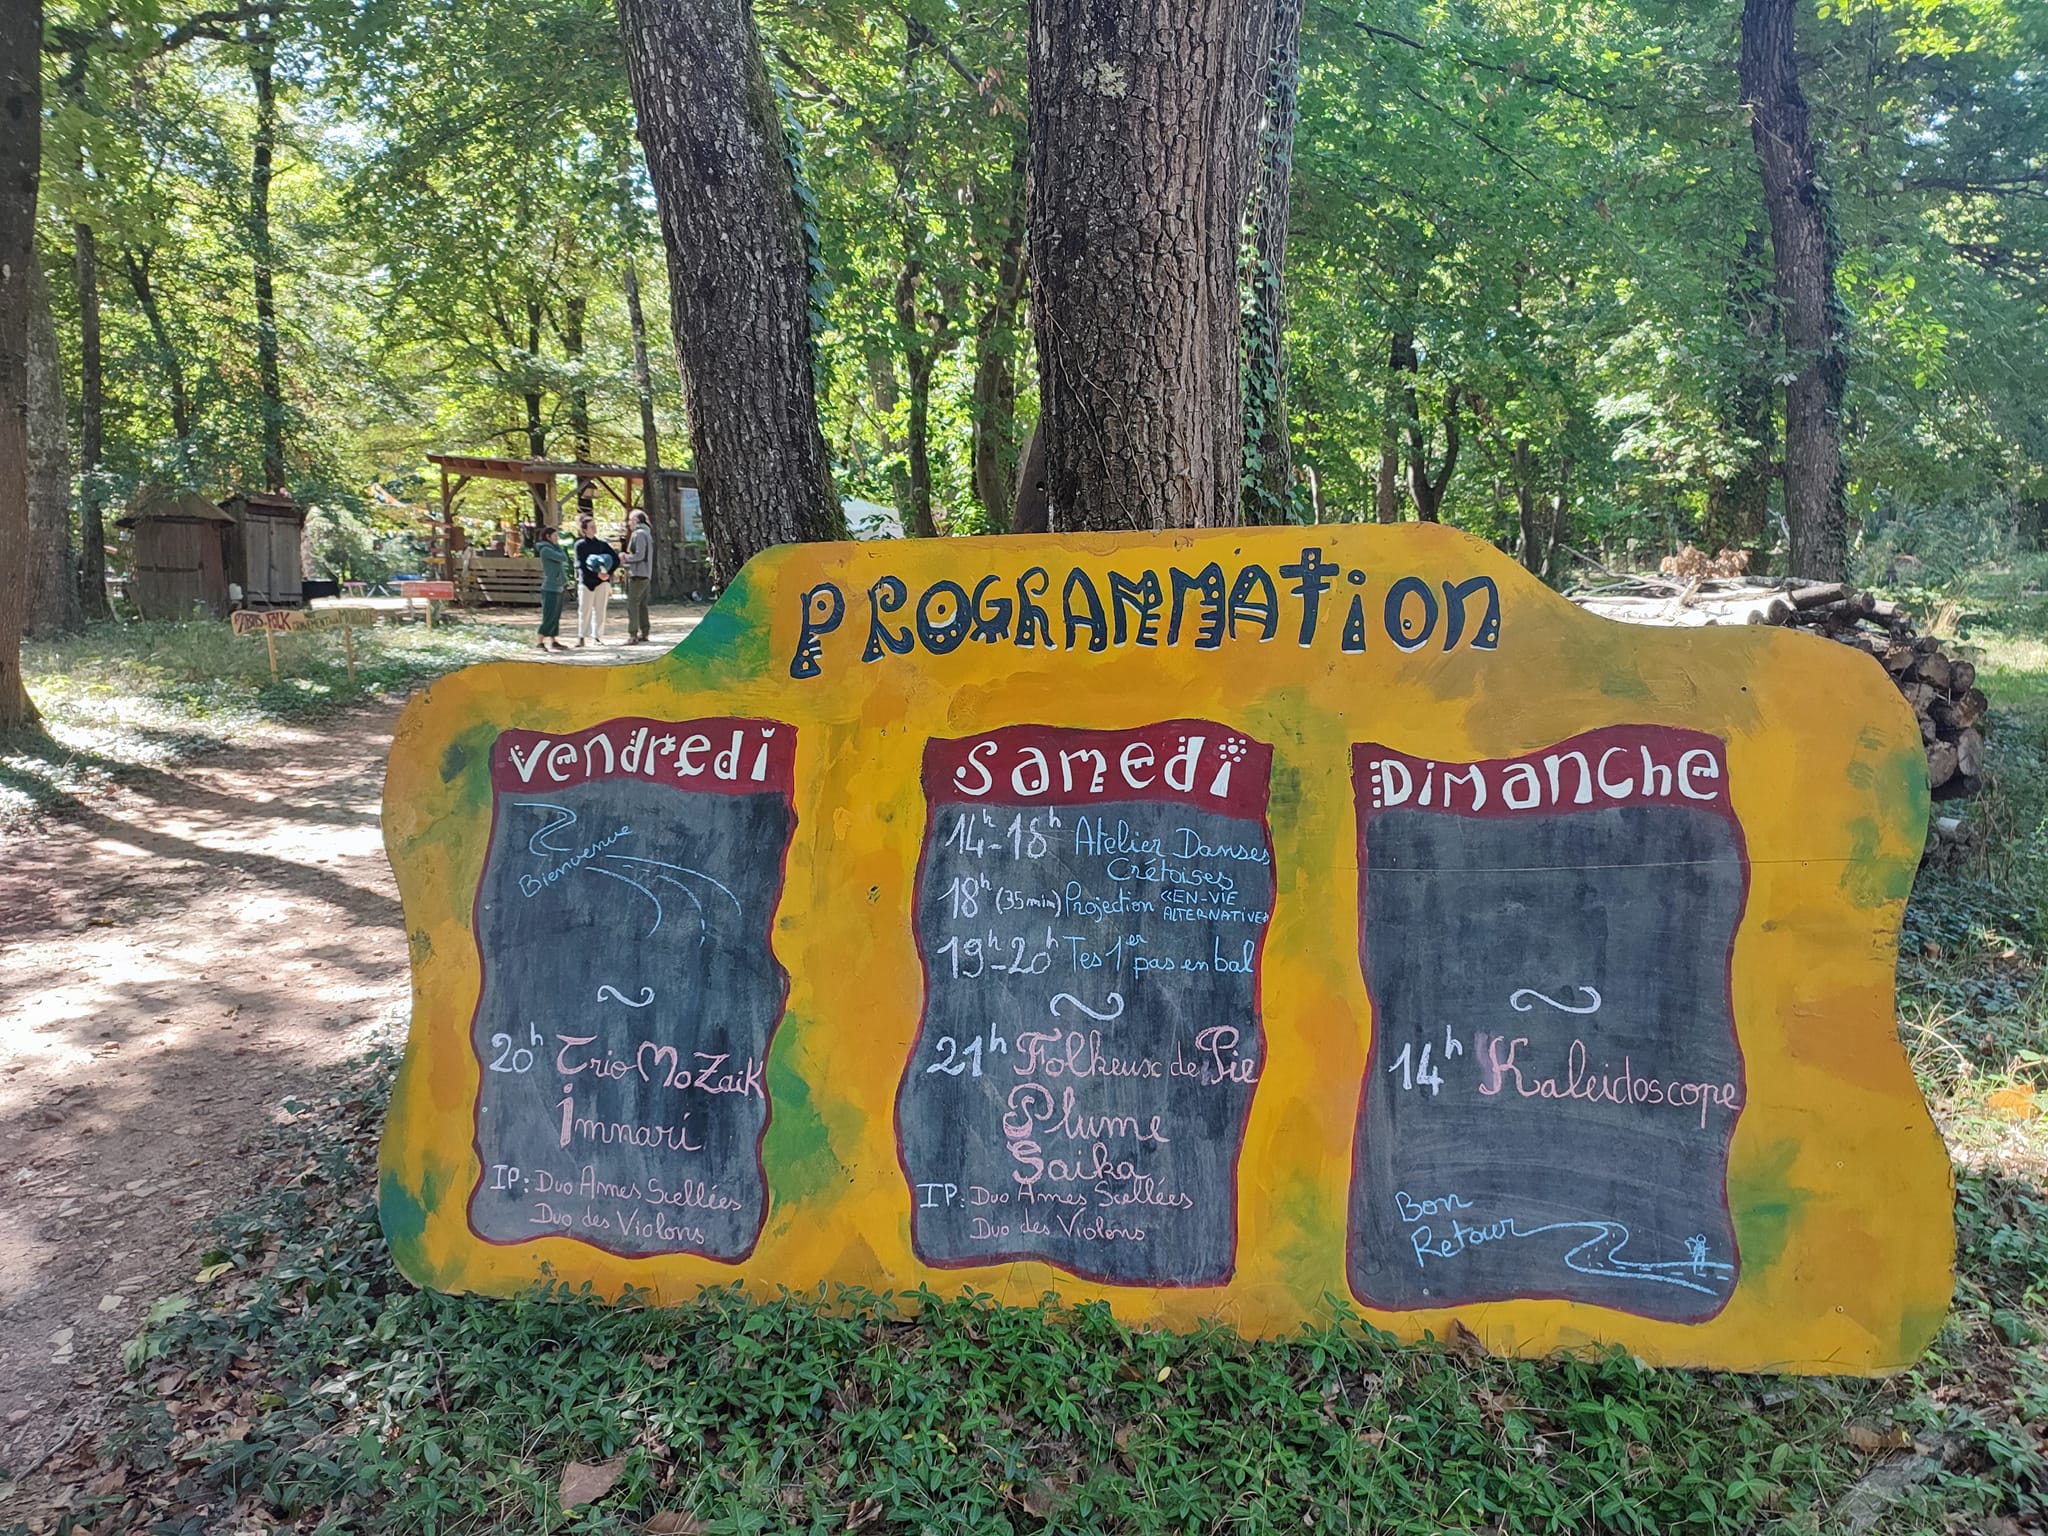 PROGRAMMATION
Vendredi
Bienvenue
20h Trio MoZaiK
Imnari
IP: Duo Âmes Scellées
Duo des Violons
Samedi
14h-18h Atelier Danses
Crétoises
18h (35min) Projection «EN-VIE
ALTERNATIVE»
19h-20h Tes 1er pas en bal
21h Folkeux de Pie
Plume
Saika
IP: Duo Âmes Scellées
Duo des Violons
Dimanche
14h Kaleidoscope
Bon
Retour